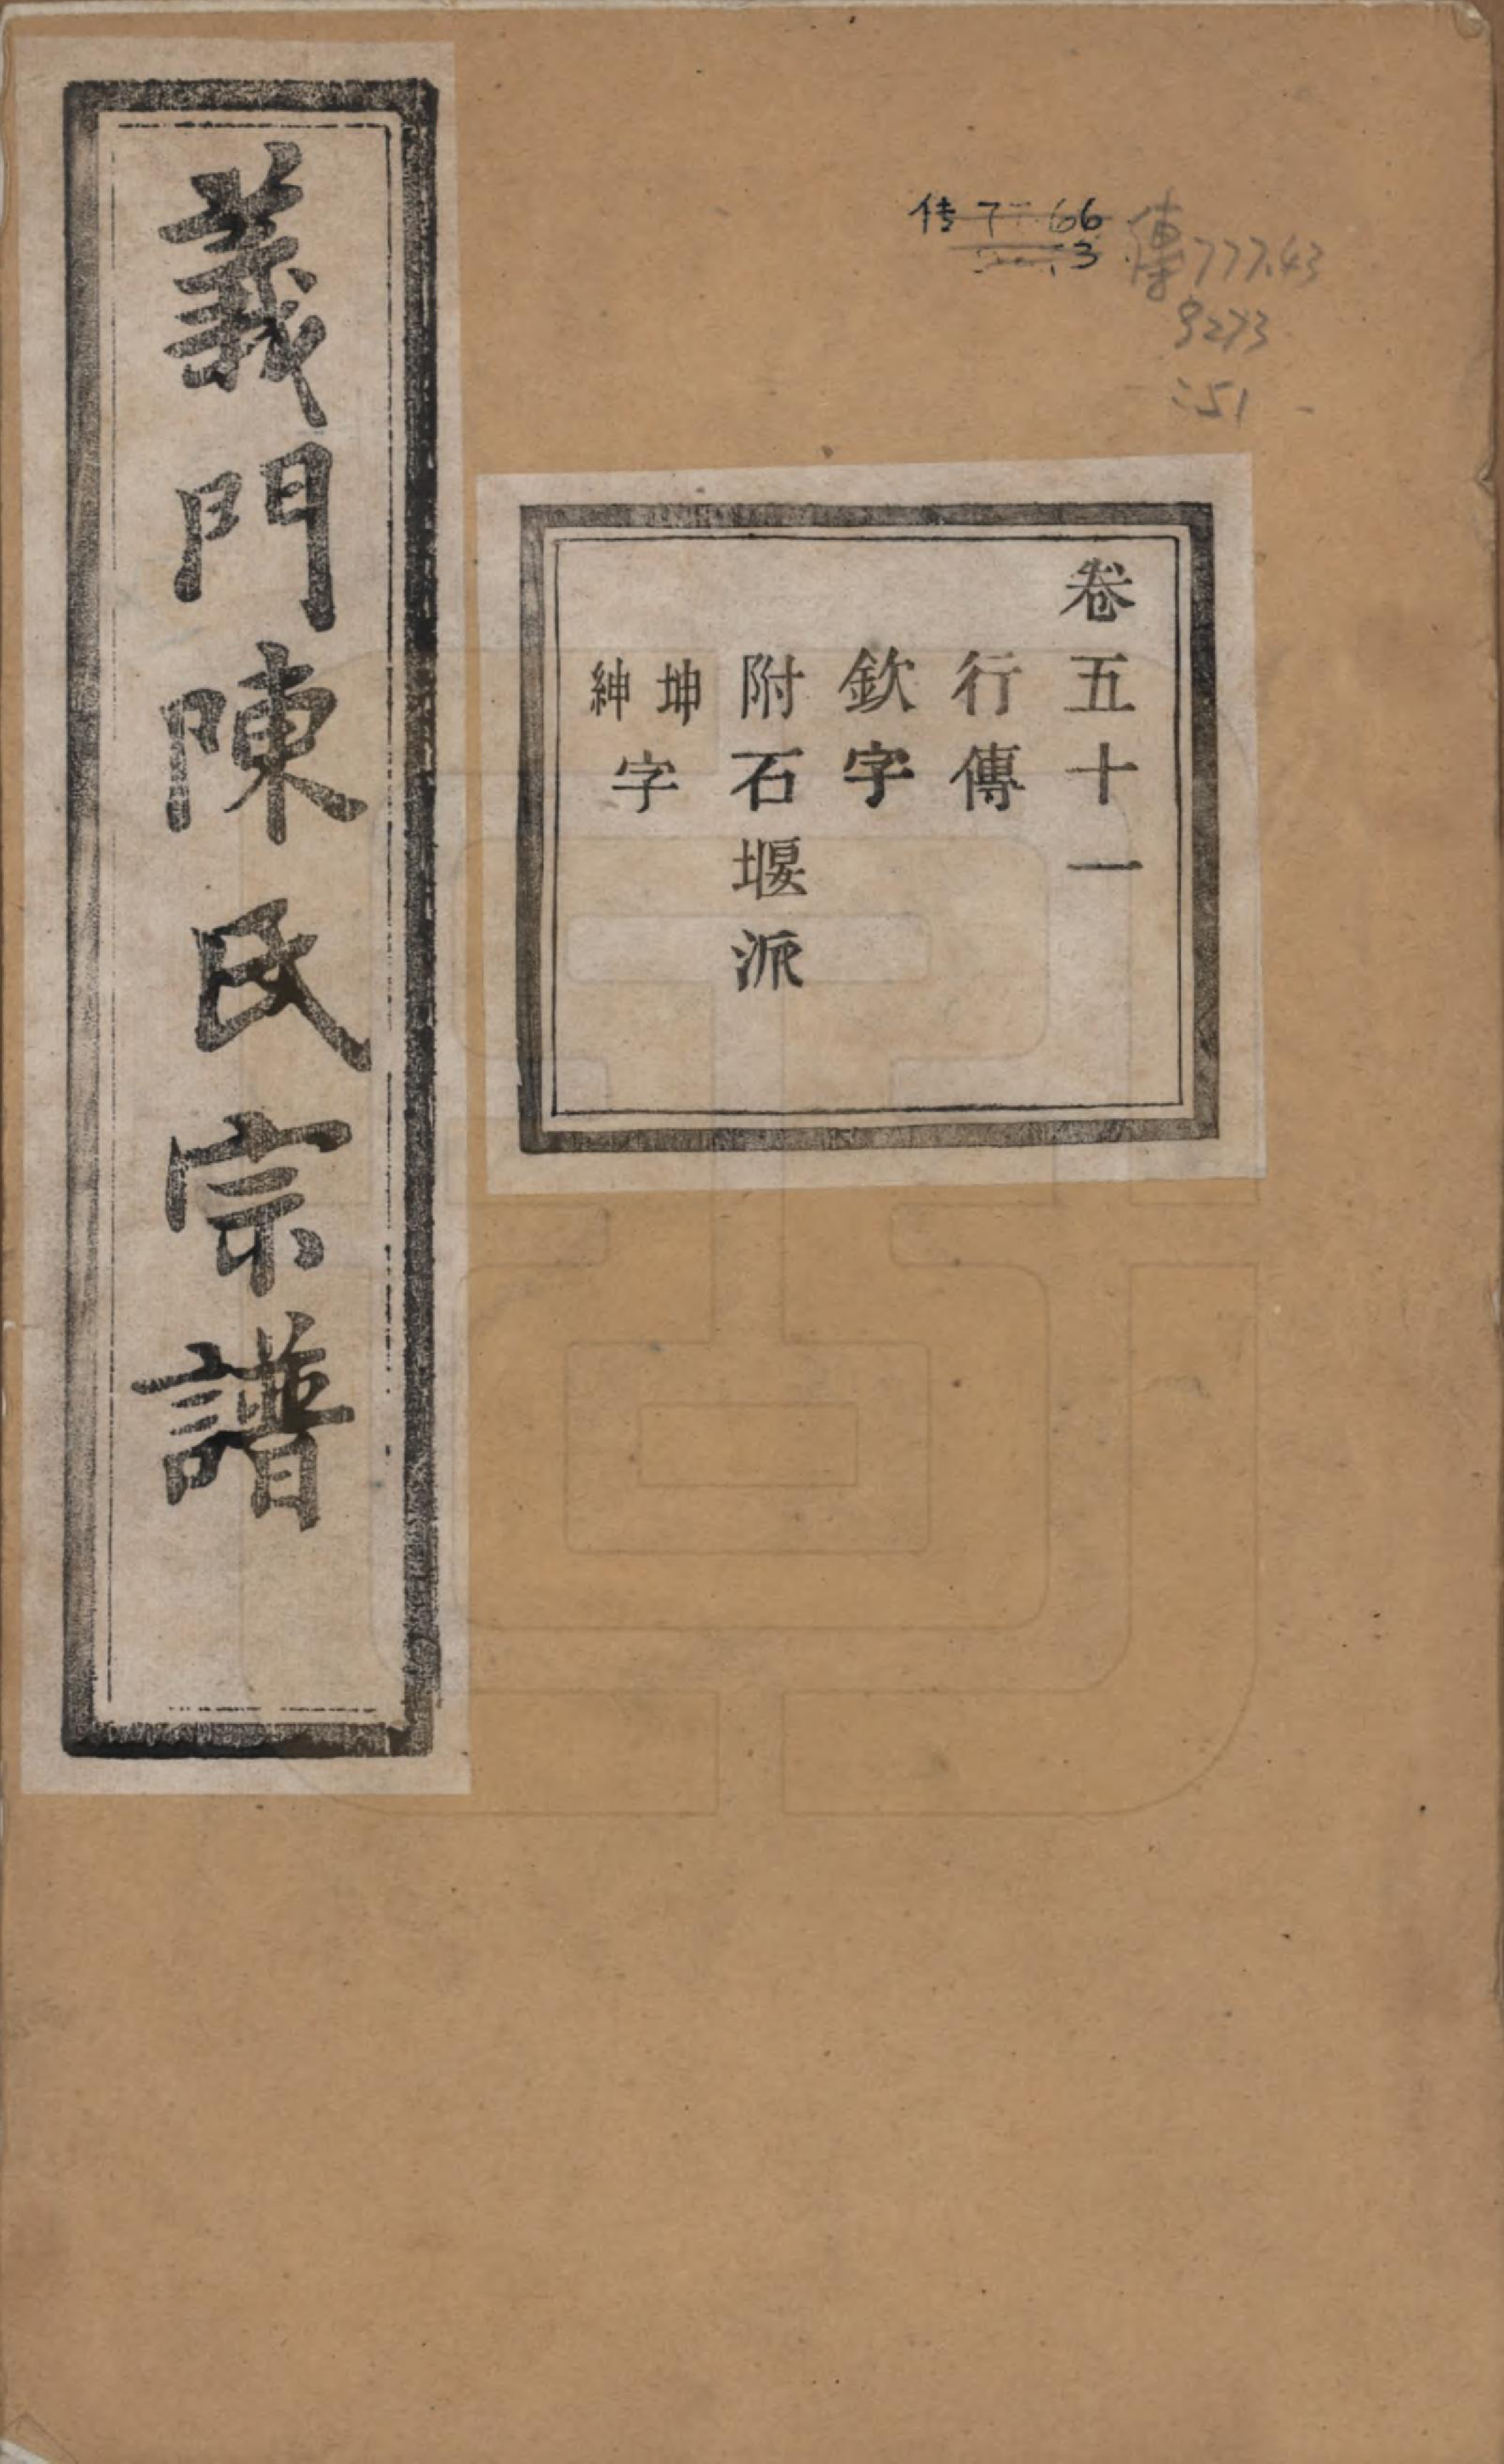 義門陳氏宗譜
卷五十一
行傳
欽字
附石堰派
坤紳字
传
66
3
傳777.43
9273
:51